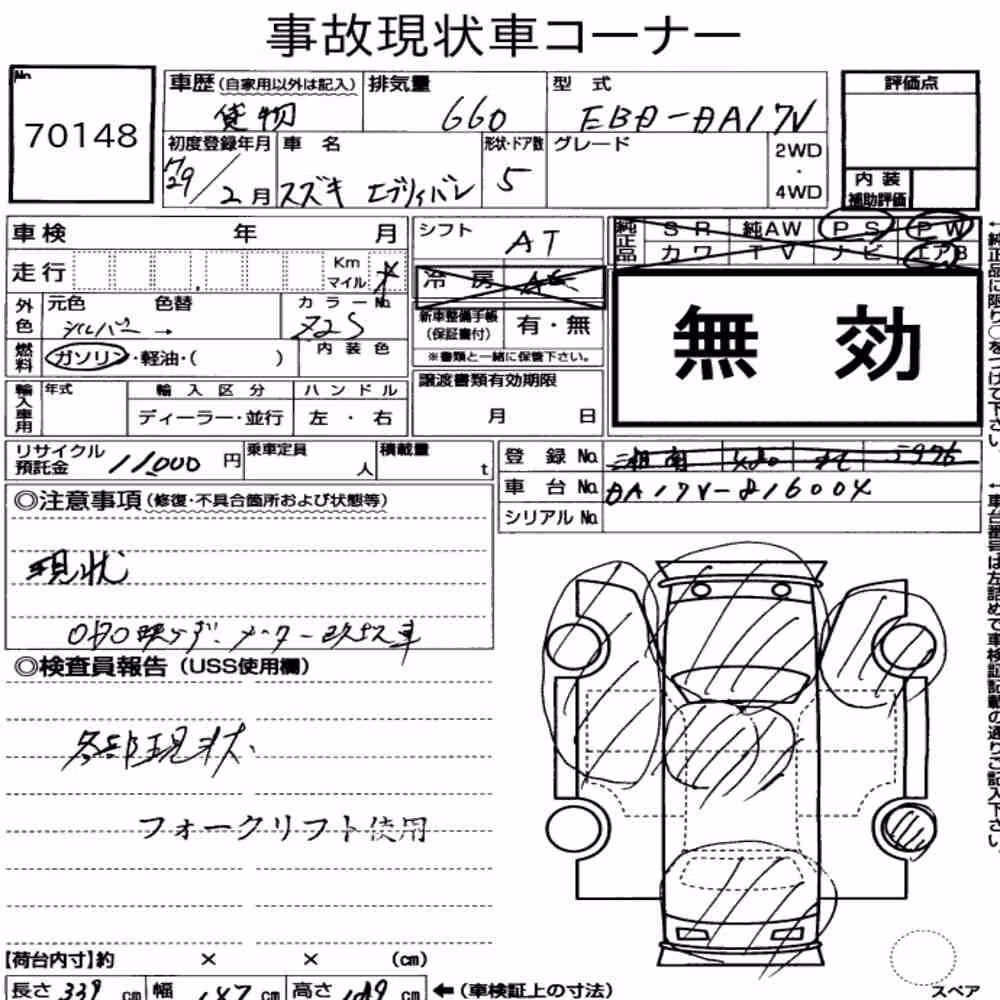 事故現状車コーナー
No.
70148
車歴(自家用以外は記入)
貨物
排気量
660
型式
EBD-DA17V
評価点
初度登録年月
H29/2月
車名
スズキ エブリイバン
形状・ドア数
5
グレード
2WD
・
4WD
内装
補助評価
車検 年 月
シフト
AT
純正品
SR 純AW PS PW
カワ TV ナビ エアB
走行
Km
マイル
冷房 AC
外色
元色 色替
シルバー →
カラーNo.
Z2S
新車整備手帳
(保証書付)
有・無
※書類と一緒に保管下さい。
無効
燃料
ガソリン・軽油・( )
内装色
輸入車用
年式
輸入区分
ディーラー・並行
ハンドル
左・右
譲渡書類有効期限
月 日
←純正品に限り○をつけて下さい。
リサイクル
預託金
11,000円
乗車定員
人
積載量
t
登録No.
湘南 480
車台No.
DA17V-816004
シリアルNo.
◎注意事項(修復・不具合箇所および状態等)
現状
◎検査員報告(USS使用欄)
各部現状.
フォークリフト使用
←車台番号は左詰めで車検証記載の通りご記入下さい。
【荷台内寸】約 × × (cm)
長さ 339 cm 幅 147 cm 高さ 189 cm ←(車検証上の寸法)
スペア